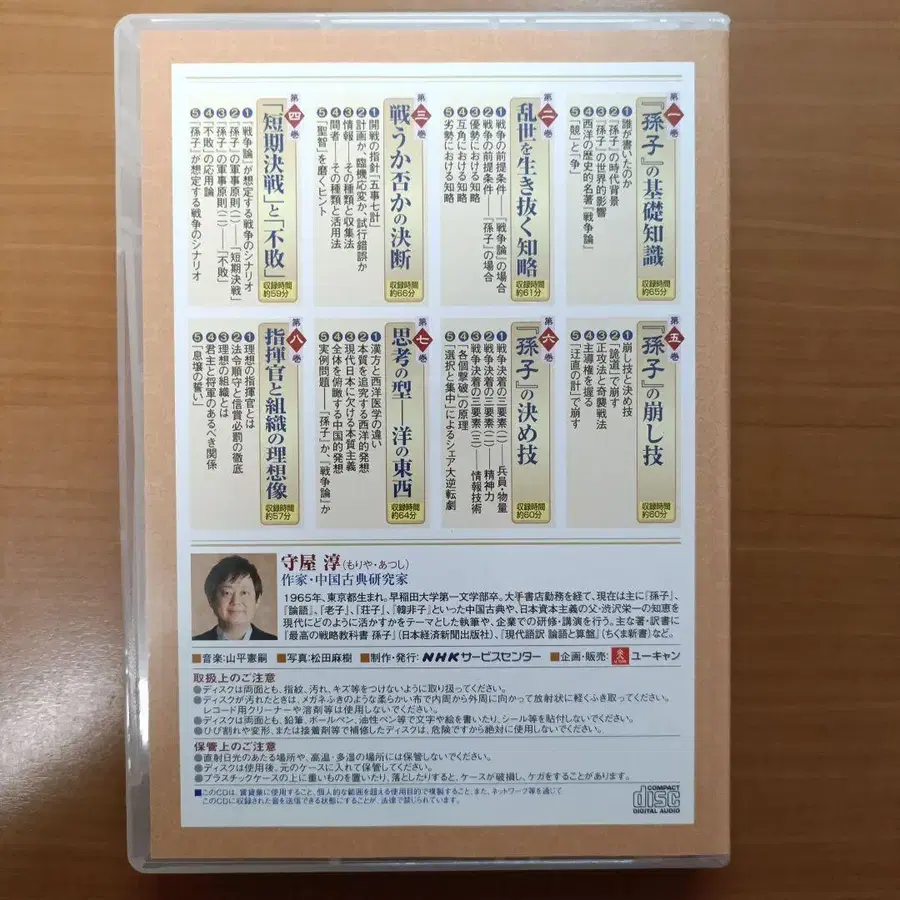 第一巻
『孫子』の基礎知識
収録時間
約65分
❶誰が書いたのか
❷『孫子』の時代背景
❸『孫子』の世界的影響
❹西洋の歴史的名著『戦争論』
❺「競」と「争」
第二巻
乱世を生き抜く知略
収録時間
約61分
❶戦争の前提条件──『戦争論』の場合
❷戦争の前提条件──『孫子』の場合
❸優勢における知略
❹互角における知略
❺劣勢における知略
第三巻
戦うか否かの決断
収録時間
約66分
❶開戦の指針「五事七計」
❷計画か、臨機応変か、試行錯誤か
❸情報──その種類と収集法
❹間者──その種類と活用法
❺「聖智」を磨くヒント
第四巻
「短期決戦」と「不敗」
収録時間
約59分
❶『戦争論』が想定する戦争のシナリオ
❷『孫子』の軍事原則(一)──「短期決戦」
❸『孫子』の軍事原則(二)──「不敗」
❹「不敗」の応用論
❺『孫子』が想定する戦争のシナリオ
第五巻
『孫子』の崩し技
収録時間
約60分
❶崩し技と決め技
❷「詭道」で崩す
❸正攻法と奇襲戦法
❹主導権を握る
❺「迂直の計」で崩す
第六巻
『孫子』の決め技
収録時間
約60分
❶戦争決着の三要素(一)──兵員・物量
❷戦争決着の三要素(二)──精神力
❸戦争決着の三要素(三)──情報技術
❹「各個撃破」の原理
❺「選択と集中」によるシェア大逆転劇
第七巻
思考の型──洋の東西
収録時間
約64分
❶漢方と西洋医学の違い
❷本質を追究する西洋的発想
❸現代日本に欠ける本質主義
❹全体を俯瞰する中国的発想
❺実例問題──『孫子』か、『戦争論』か
第八巻
指揮官と組織の理想像
収録時間
約57分
❶理想の指揮官とは
❷法令順守と信賞必罰の徹底
❸理想の組織とは
❹君主と将軍のあるべき関係
❺「息壌の誓い」
守屋 淳(もりや・あつし)
作家・中国古典研究家
1965年、東京都生まれ。早稲田大学第一文学部卒。大手書店勤務を経て、現在は主に『孫子』、
『論語』、『老子』、『荘子』、『韓非子』といった中国古典や、日本資本主義の父・渋沢栄一の知恵を
現代にどのように活かすかをテーマとした執筆や、企業での研修・講演を行う。主な著・訳書に
『最高の戦略教科書 孫子』(日本経済新聞出版社)、『現代語訳 論語と算盤』(ちくま新書)など。
■音楽:山平憲嗣 ■写真:松田麻樹 ■制作・発行:NHKサービスセンター ■企画・販売:ユーキャン
取扱上のご注意
●ディスクは両面とも、指紋、汚れ、キズ等をつけないように取り扱ってください。
●ディスクが汚れたときは、メガネふきのような柔らかい布で内周から外周に向かって放射状に軽くふき取ってください。
レコード用クリーナーや溶剤等は使用しないでください。
●ディスクは両面とも、鉛筆、ボールペン、油性ペン等で文字や絵を書いたり、シール等を貼付しないでください。
●ひび割れや変形、または接着剤等で補修したディスクは、危険ですから絶対に使用しないでください。
保管上のご注意
●直射日光のあたる場所や、高温・多湿の場所には保管しないでください。
●ディスクは使用後、元のケースに入れて保管してください。
●プラスチックケースの上に重いものを置いたり、落としたりすると、ケースが破損し、ケガをすることがあります。
■このCDは、賃貸業に使用すること、個人的な範囲を超える使用目的で複製すること、また、ネットワーク等を通じて
このCDに収録された音を送信できる状態にすることが、法律で禁じられています。
COMPACT
disc
DIGITAL AUDIO